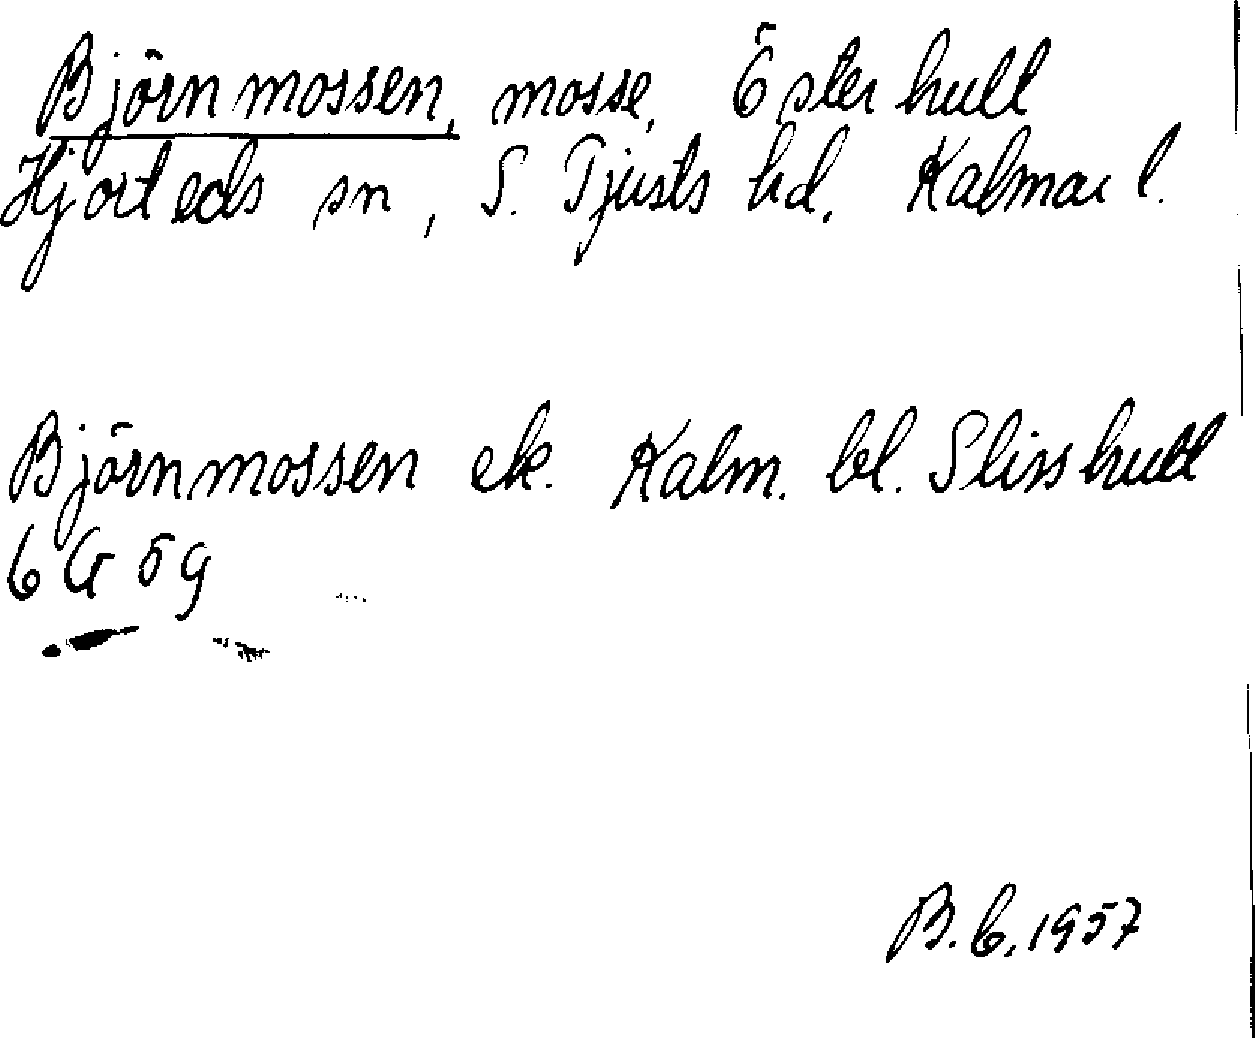 Björnmossen, mosse, Österhult
Hjorteds sn, S. Tjusts hd, Kalmar l.
Björnmossen ek. Kalm. bl. Slisshult
6 G 5 g
B. C. 1957